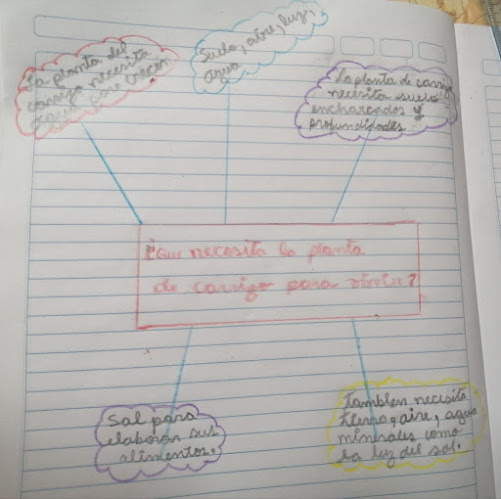 La planta del
carrizo necesita
agua para crecer.
Suelo, aire, luz,
agua.
La planta de carrizo
necesita suelo
encharcados y
profundidades
¿Que necesita la planta
de carrizo para vivir?
Sal para
elaborar sus
alimentos.
tambien necesita
tierra, aire, agua
minerales como
la luz del sol.